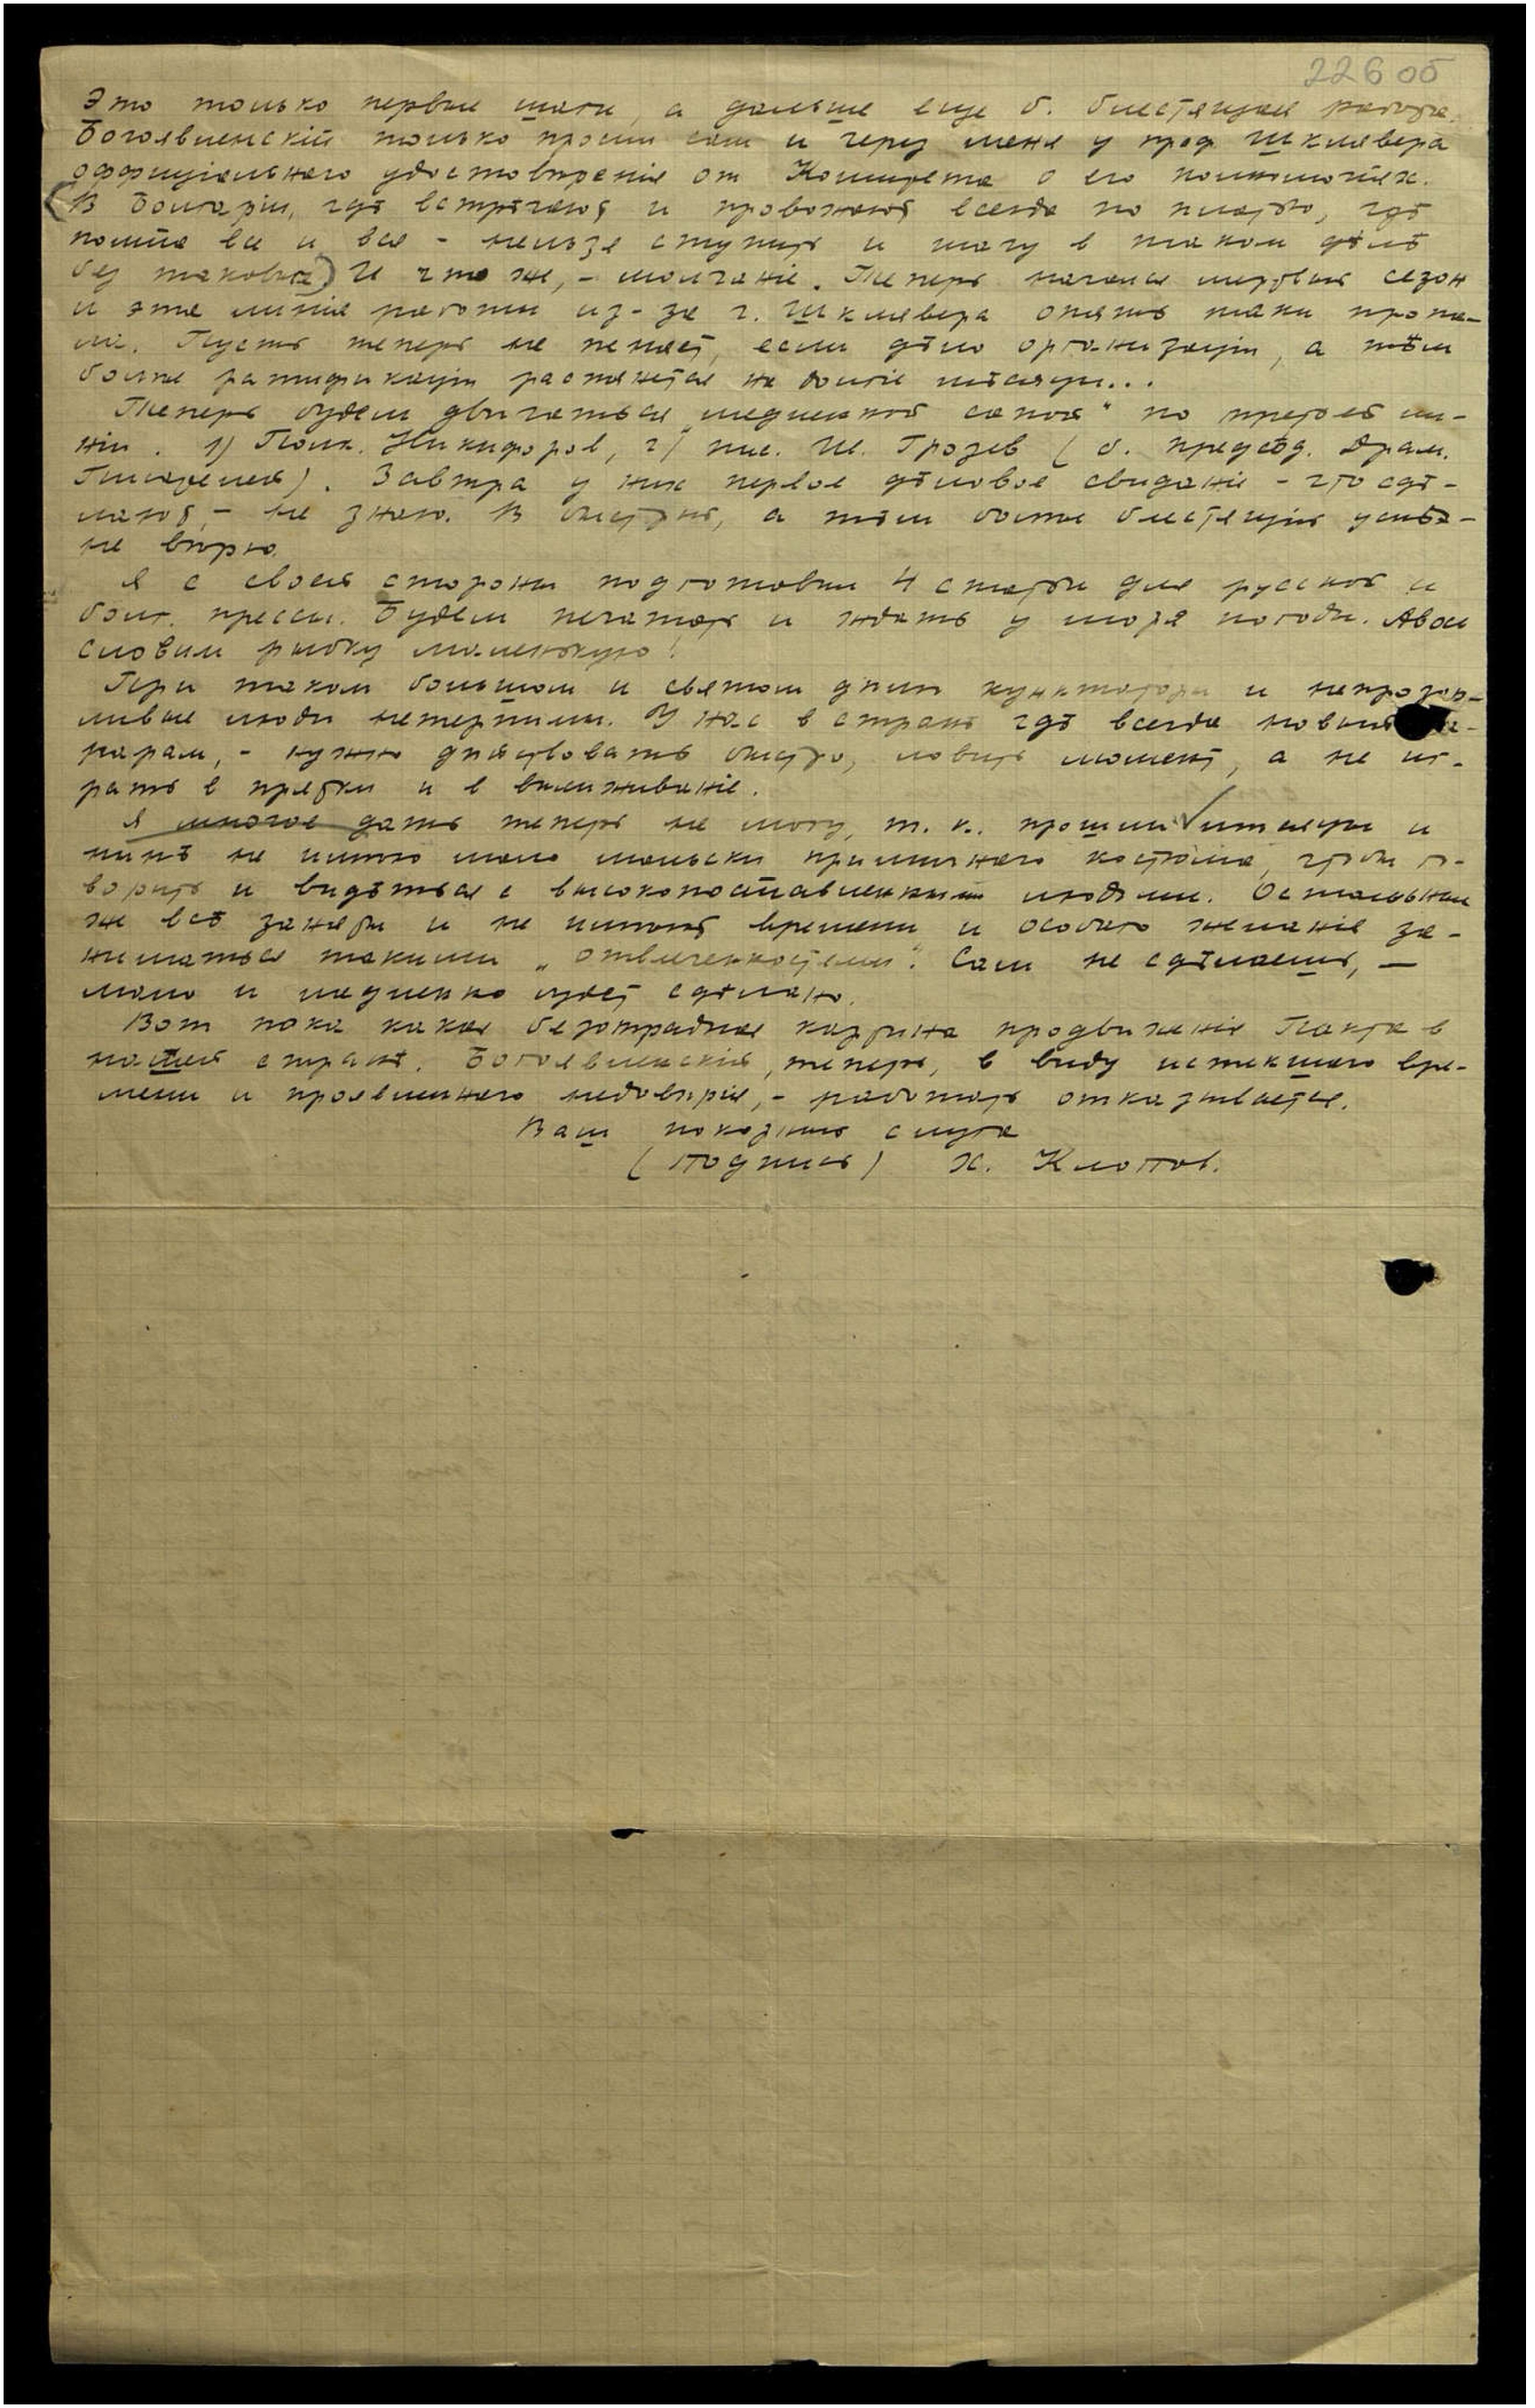 226 об
Это только первые шаги, а дальше еще б. блестящая работа.
Богоявленскій только просил сам и через меня у проф. Шклявера
оффиціальнаго удостовѣренія от Комитета о его полномочіях.
(В Болгаріи, гдѣ встрѣчают и провожают всегда по платью, гдѣ
помпа все и вся - нельзя ступить и шагу в таком дѣлѣ
без таковых) И что же, - молчаніе. Теперь начался мертвый сезон
и эта линія работы из-за г. Шклявера опять таки пропа-
ла. Пусть теперь не пеняет, если дѣло организаціи, а тѣм
болѣе ратификаціи растянется на долгіе мѣсяцы...
Теперь будем двигаться „медленной сапой" по третьей ли-
ніи. 1) Полк. Никифоров, 2) пис. Ш. Грозев (б. предсѣд. Драм.
Писателей). Завтра у них первое дѣловое свиданіе - что сдѣ-
лают, - не знаю. В быстрый, а тѣм болѣе блестящій успѣх -
не вѣрю.
Я с своей стороны подготовил 4 статьи для русской и
болг. прессы. Будем печатать и ждать у моря погоды. Авось
словим рыбку маленькую!
При таком большом и святом дѣлѣ кунктаторы и непрозор-
ливые люди нетерпимы. У нас в странѣ гдѣ всегда новый
рарам, - нужно дѣйствовать быстро, ловить момент, а не иг-
рать в прятки и в вымениваніе.
Я многое дать теперь не могу, т. к. прошли мѣсяцы и
нынѣ не имѣю мало мальски приличнаго костюма, чтобы го-
ворить и видѣться с высокопоставленными людьми. Остальные
же всѣ заняты и не имѣют времени и особаго желанія за-
ниматься такими „отвлеченностями". Сам не сдѣлаешь, -
мало и медленно будет сдѣлано.
Вот пока какая безотрадная картина продвиженія Пакта в
нашей странѣ. Богоявленскій, теперь, в виду истекшаго вре-
мени и проявленнаго недовѣрія, - работать отказывается.
Ваш покорный слуга
(подпись) Х. Клопов.